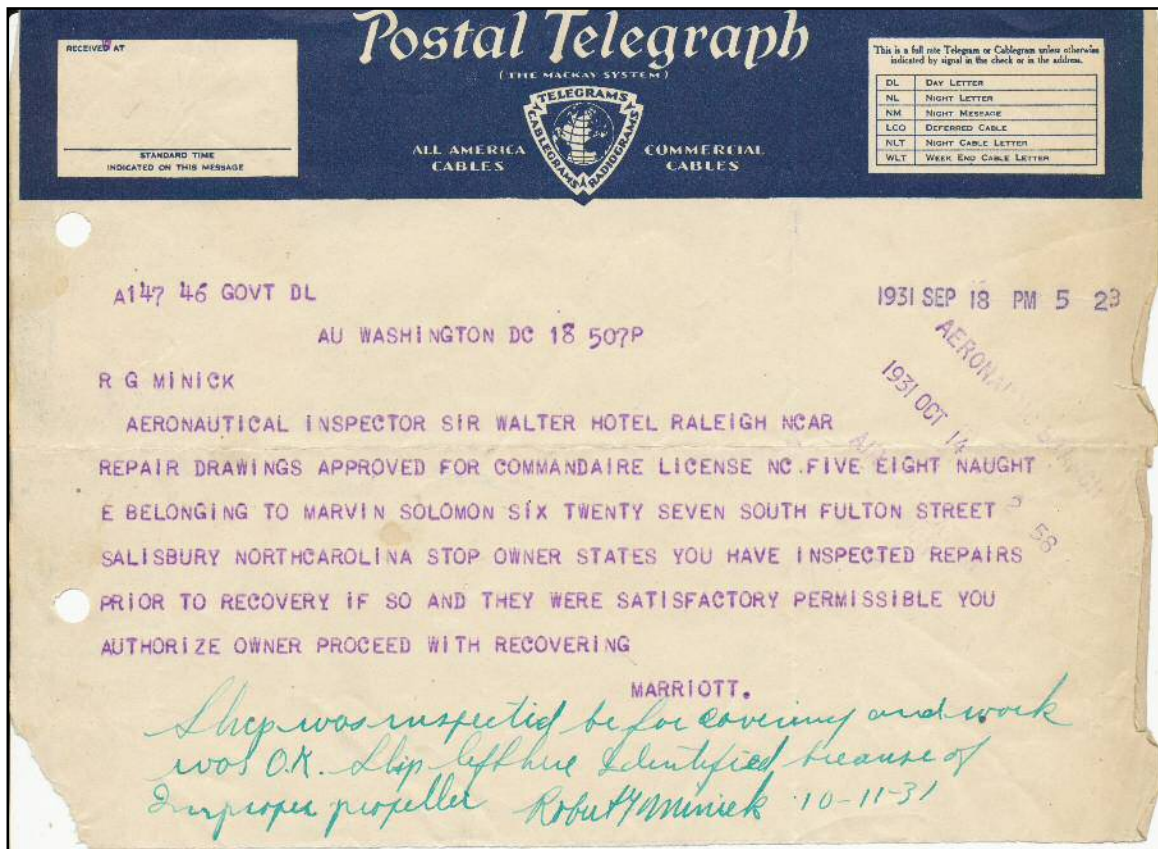 RECEIVED AT
STANDARD TIME
INDICATED ON THIS MESSAGE
Postal Telegraph
(THE MACKAY SYSTEM)
TELEGRAMS
CABLEGRAMS
RADIOGRAMS
ALL AMERICA
CABLES
COMMERCIAL
CABLES
This is a full rate Telegram or Cablegram unless otherwise
indicated by signal in the check or in the address.
DL DAY LETTER
NL NIGHT LETTER
NM NIGHT MESSAGE
LCO DEFERRED CABLE
NLT NIGHT CABLE LETTER
WLT WEEK END CABLE LETTER
A147 46 GOVT DL
1931 SEP 18 PM 5 23
AU WASHINGTON DC 18 507P
R G MINICK
AERONAUTICAL INSPECTOR SIR WALTER HOTEL RALEIGH NCAR
REPAIR DRAWINGS APPROVED FOR COMMANDAIRE LICENSE NC.FIVE EIGHT NAUGHT
E BELONGING TO MARVIN SOLOMON SIX TWENTY SEVEN SOUTH FULTON STREET
SALISBURY NORTHCAROLINA STOP OWNER STATES YOU HAVE INSPECTED REPAIRS
PRIOR TO RECOVERY IF SO AND THEY WERE SATISFACTORY PERMISSIBLE YOU
AUTHORIZE OWNER PROCEED WITH RECOVERING
MARRIOTT.
1931 OCT 14 2 58
Ship was inspected before covering and work
was O.K. Ship left here Identified because of
Improper propeller Robert G Minick 10-11-31